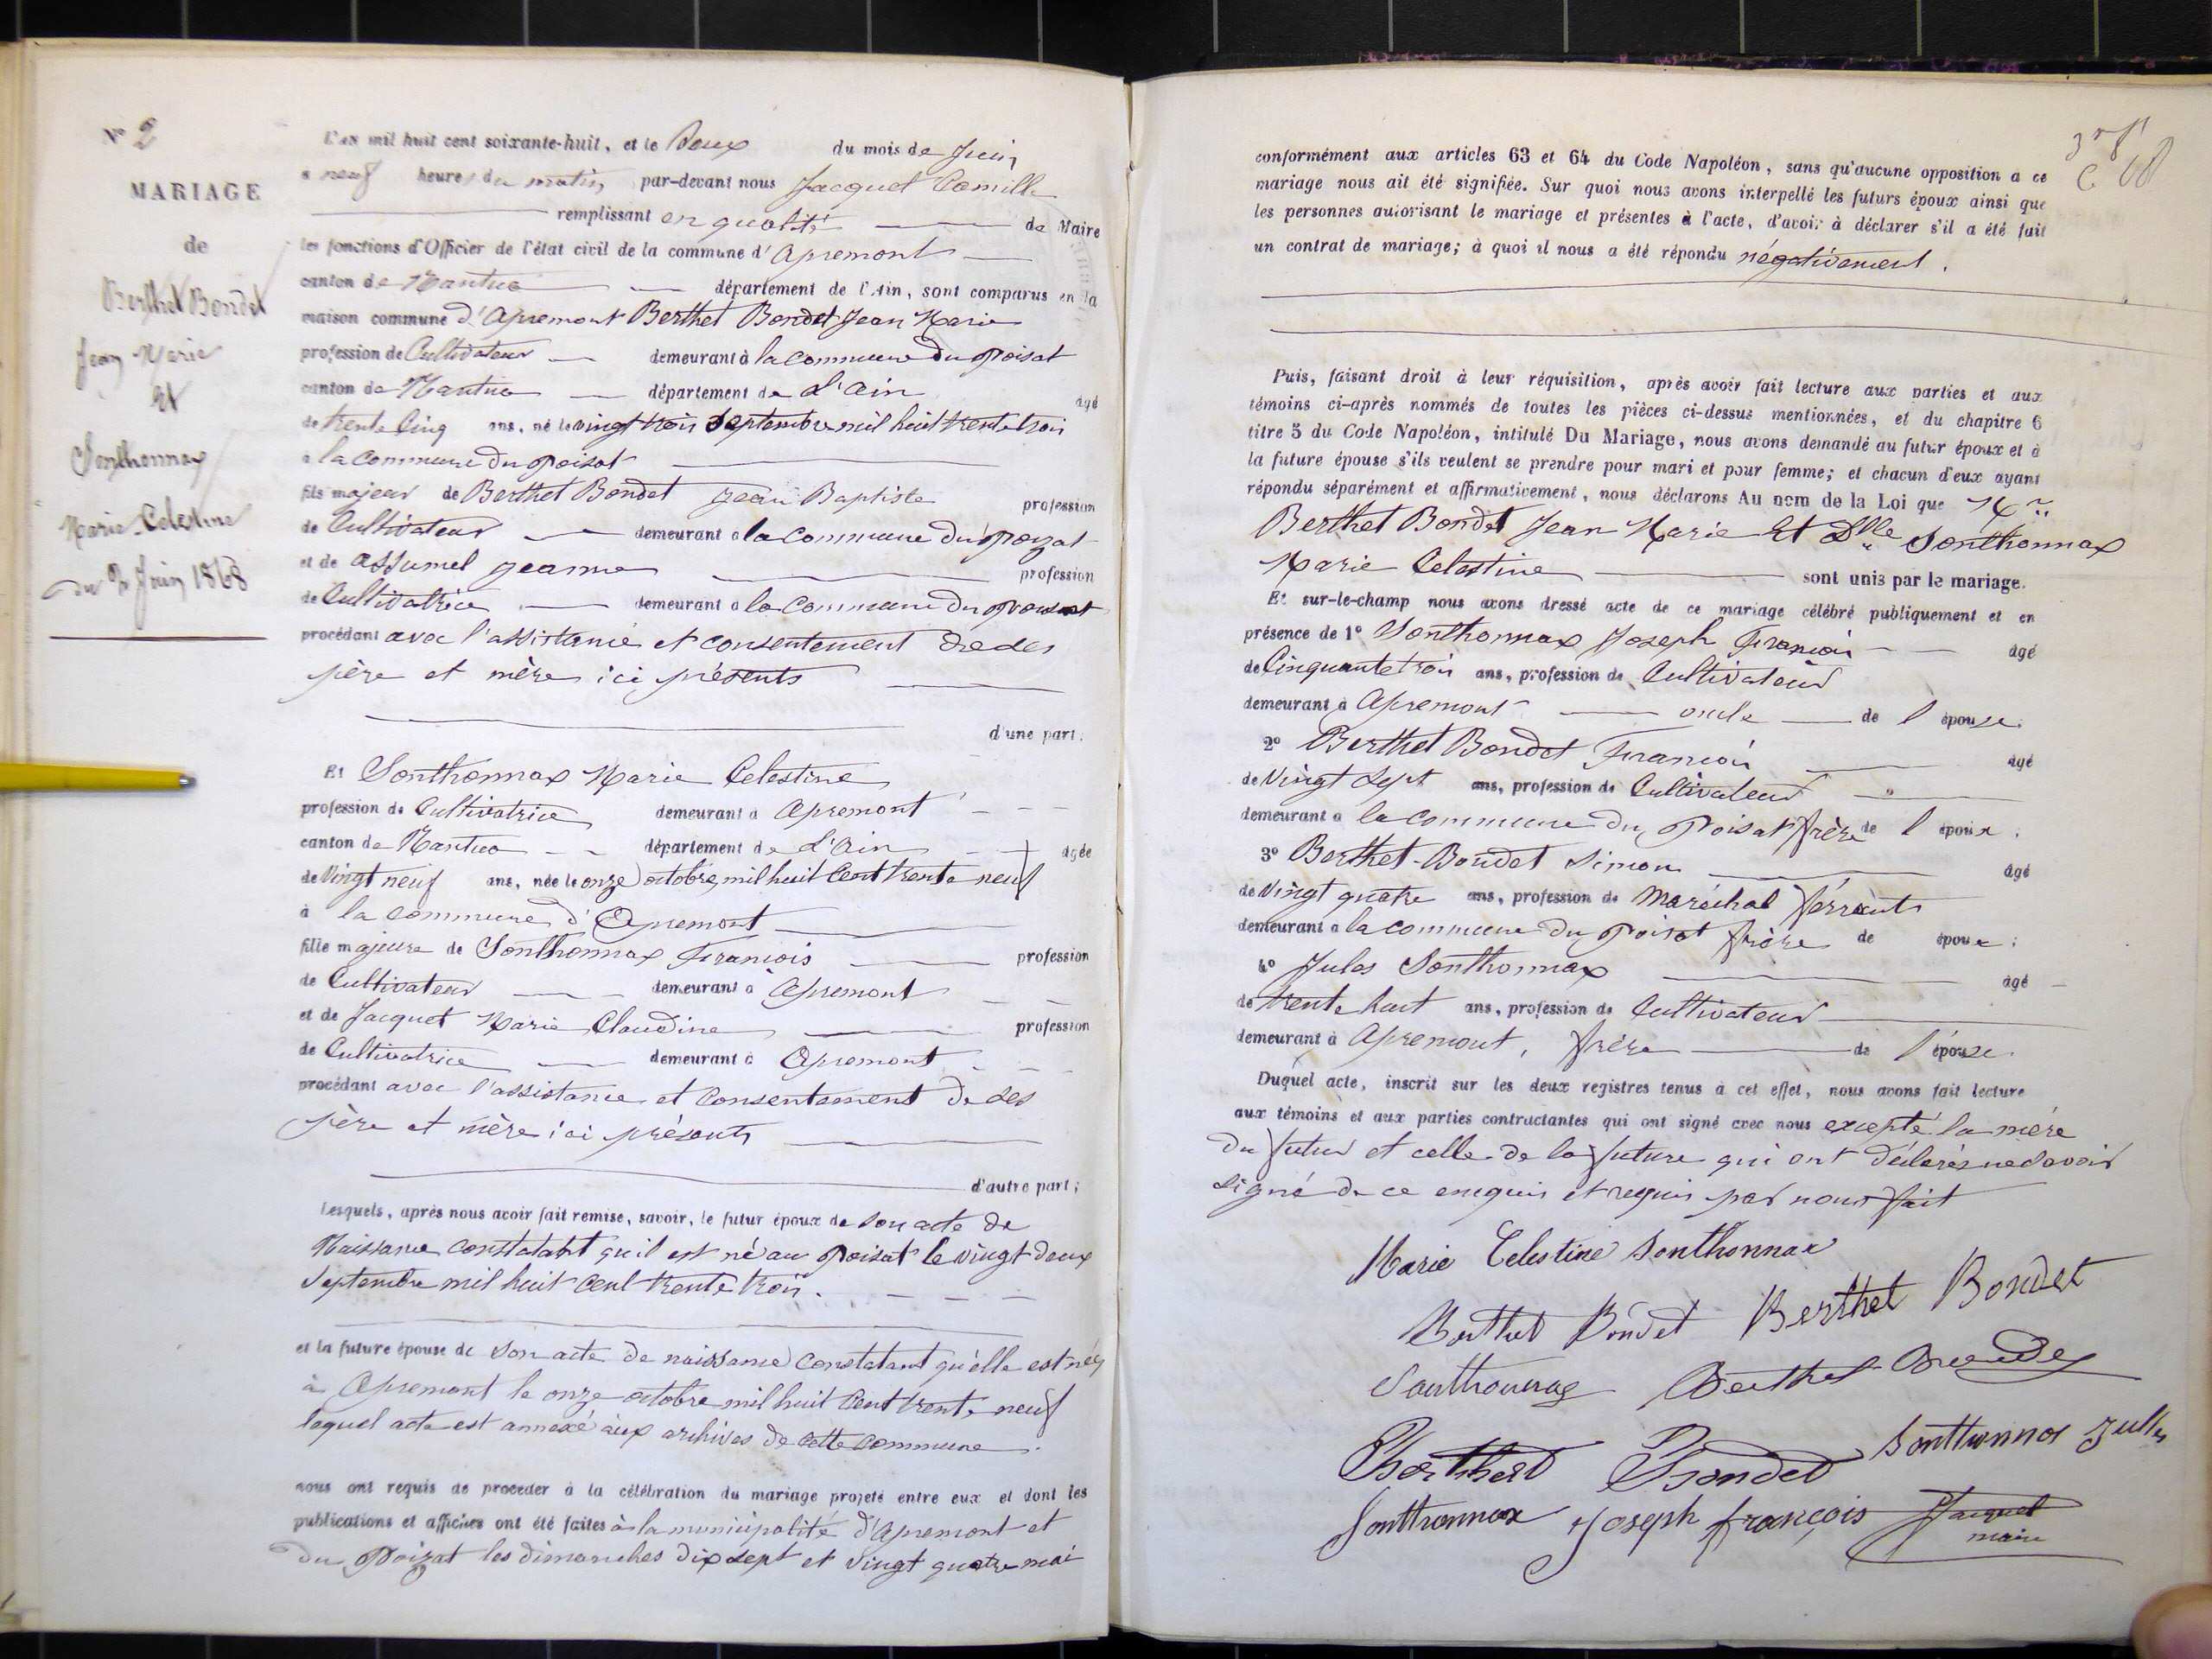 N° 2
MARIAGE
de
Berthet Bondet
Jean Marie
Et
Sonthonnax
Marie Celestine
du 2 Juin 1868
L'an mil huit cent soixante-huit, et le Deux du mois de Juin
a neuf heures du matin par-devant nous Jacquet Camille
remplissant en qualité de Maire
les fonctions d'Officier de l'état civil de la commune d'Apremont
canton de Nantua département de l'Ain, sont comparus en la
maison commune d'Apremont Berthet Bondet Jean Marie
profession de Cultivateur demeurant à la commune du Poisat
canton de Nantua département de L'ain agé
de trente cinq ans, né le vingt trois Septembre mil huit trente trois
a la commune du Poisat
fils majeur de Berthet Bondet Jean Baptiste profession
de Cultivateur demeurant a la commune du Poizat
et de Assumel jeanne profession
de Cultivatrice demeurant a la commune du
procédant avec l'assistance et consentement de des
père et mère ici présents
d'une part.
Et Sonthonnax Marie Celestine
profession de Cultivatrice demeurant a Apremont
canton de Nantua département de L'ain agée
de Vingt neuf ans, née le onze octobre mil huit Cent trente neuf
à la commune d'Apremont
fille majeure de Sonthonnax Francois profession
de Cultivateur demeurant a Apremont
et de Jacquet Marie Claudine profession
de Cultivatrice demeurant à Apremont
procédant avec l'assistance et Consentement de des
père et mère ici présents
d'autre part;
Lesquels, après nous avoir fait remise, savoir, le futur époux de son acte de
Naissance constatant qu'il est né au Poisat le vingt deux
Septembre mil huit Cent trente trois.
et la future épouse de son acte de naissance constatant qu'elle est née
à Apremont le onze octobre mil huit Cent trente neuf
lequel acte est annexé aux archives de cette commune.
nous ont requis de proceder à la célébration du mariage projeté entre eux et dont les
publications et affiches ont été faites à la municipalité d'Apremont et
du Poizat les dimanches dix sept et vingt quatre mai
conformément aux articles 63 et 64 du Code Napoléon, sans qu'aucune opposition a ce
mariage nous ait été signifiée. Sur quoi nous avons interpellé les futurs époux ainsi que
les personnes autorisant le mariage et présentes à l'acte, d'avoir à déclarer s'il a été fait
un contrat de mariage; à quoi il nous a été répondu négativement.
Puis, faisant droit à leur réquisition, après avoir fait lecture aux parties et aux
témoins ci-après nommés de toutes les pièces ci-dessus mentionnées, et du chapitre 6
titre 5 du Code Napoléon, intitulé Du Mariage, nous avons demandé au futur époux et à
la future épouse s'ils veulent se prendre pour mari et pour femme; et chacun d'eux ayant
répondu séparément et affirmativement, nous déclarons Au nom de la Loi que Mr
Berthet Bondet Jean Marie Et Dlle Sonthonnax
Marie Celestine sont unis par le mariage.
Et sur-le-champ nous avons dressé acte de ce mariage célébré publiquement et en
présence de 1° Sonthonnax Joseph Francois agé
de Cinquante trois ans, profession de Cultivateur
demeurant à Apremont oncle de l'épouse.
2° Berthet Bondet Francois agé
de Vingt Sept ans, profession de Cultivateur
demeurant a la commune du Poisat frère de l'époux;
3° Berthet-Bondet Simon agé
de Vingt quatre ans, profession de Maréchal ferrants
demeurant a la commune du Poisat frère de époux;
4° Jules Sonthonnax agé
de trente huit ans, profession de Cultivateur
demeurant à Apremont, frère de l'épouse.
Duquel acte, inscrit sur les deux registres tenus à cet effet, nous avons fait lecture
aux témoins et aux parties contractantes qui ont signé avec nous excepté la mére
du futur et celle de la future qui ont déclarés ne savoir
signé de ce enquis et requis par nous fait
Marie Celestine Sonthonnax
Berthet Bondet Berthet Bondet
Sonthonnax Berthet
Berthet Bondet Sonthonnax Jules
Sonthonnax Joseph françois Jacquet
maire